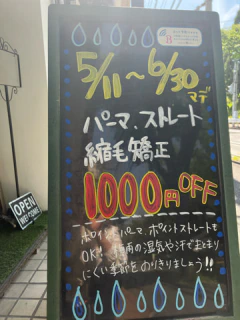 5/11~6/30
マデ
パーマ、ストレート
縮毛矯正
1000円OFF
ポイントパーマ、ポイントストレートも
OK! 梅雨の湿気や汗でまとまり
にくい季節をのりきりましょう!!
OPEN
WELCOME